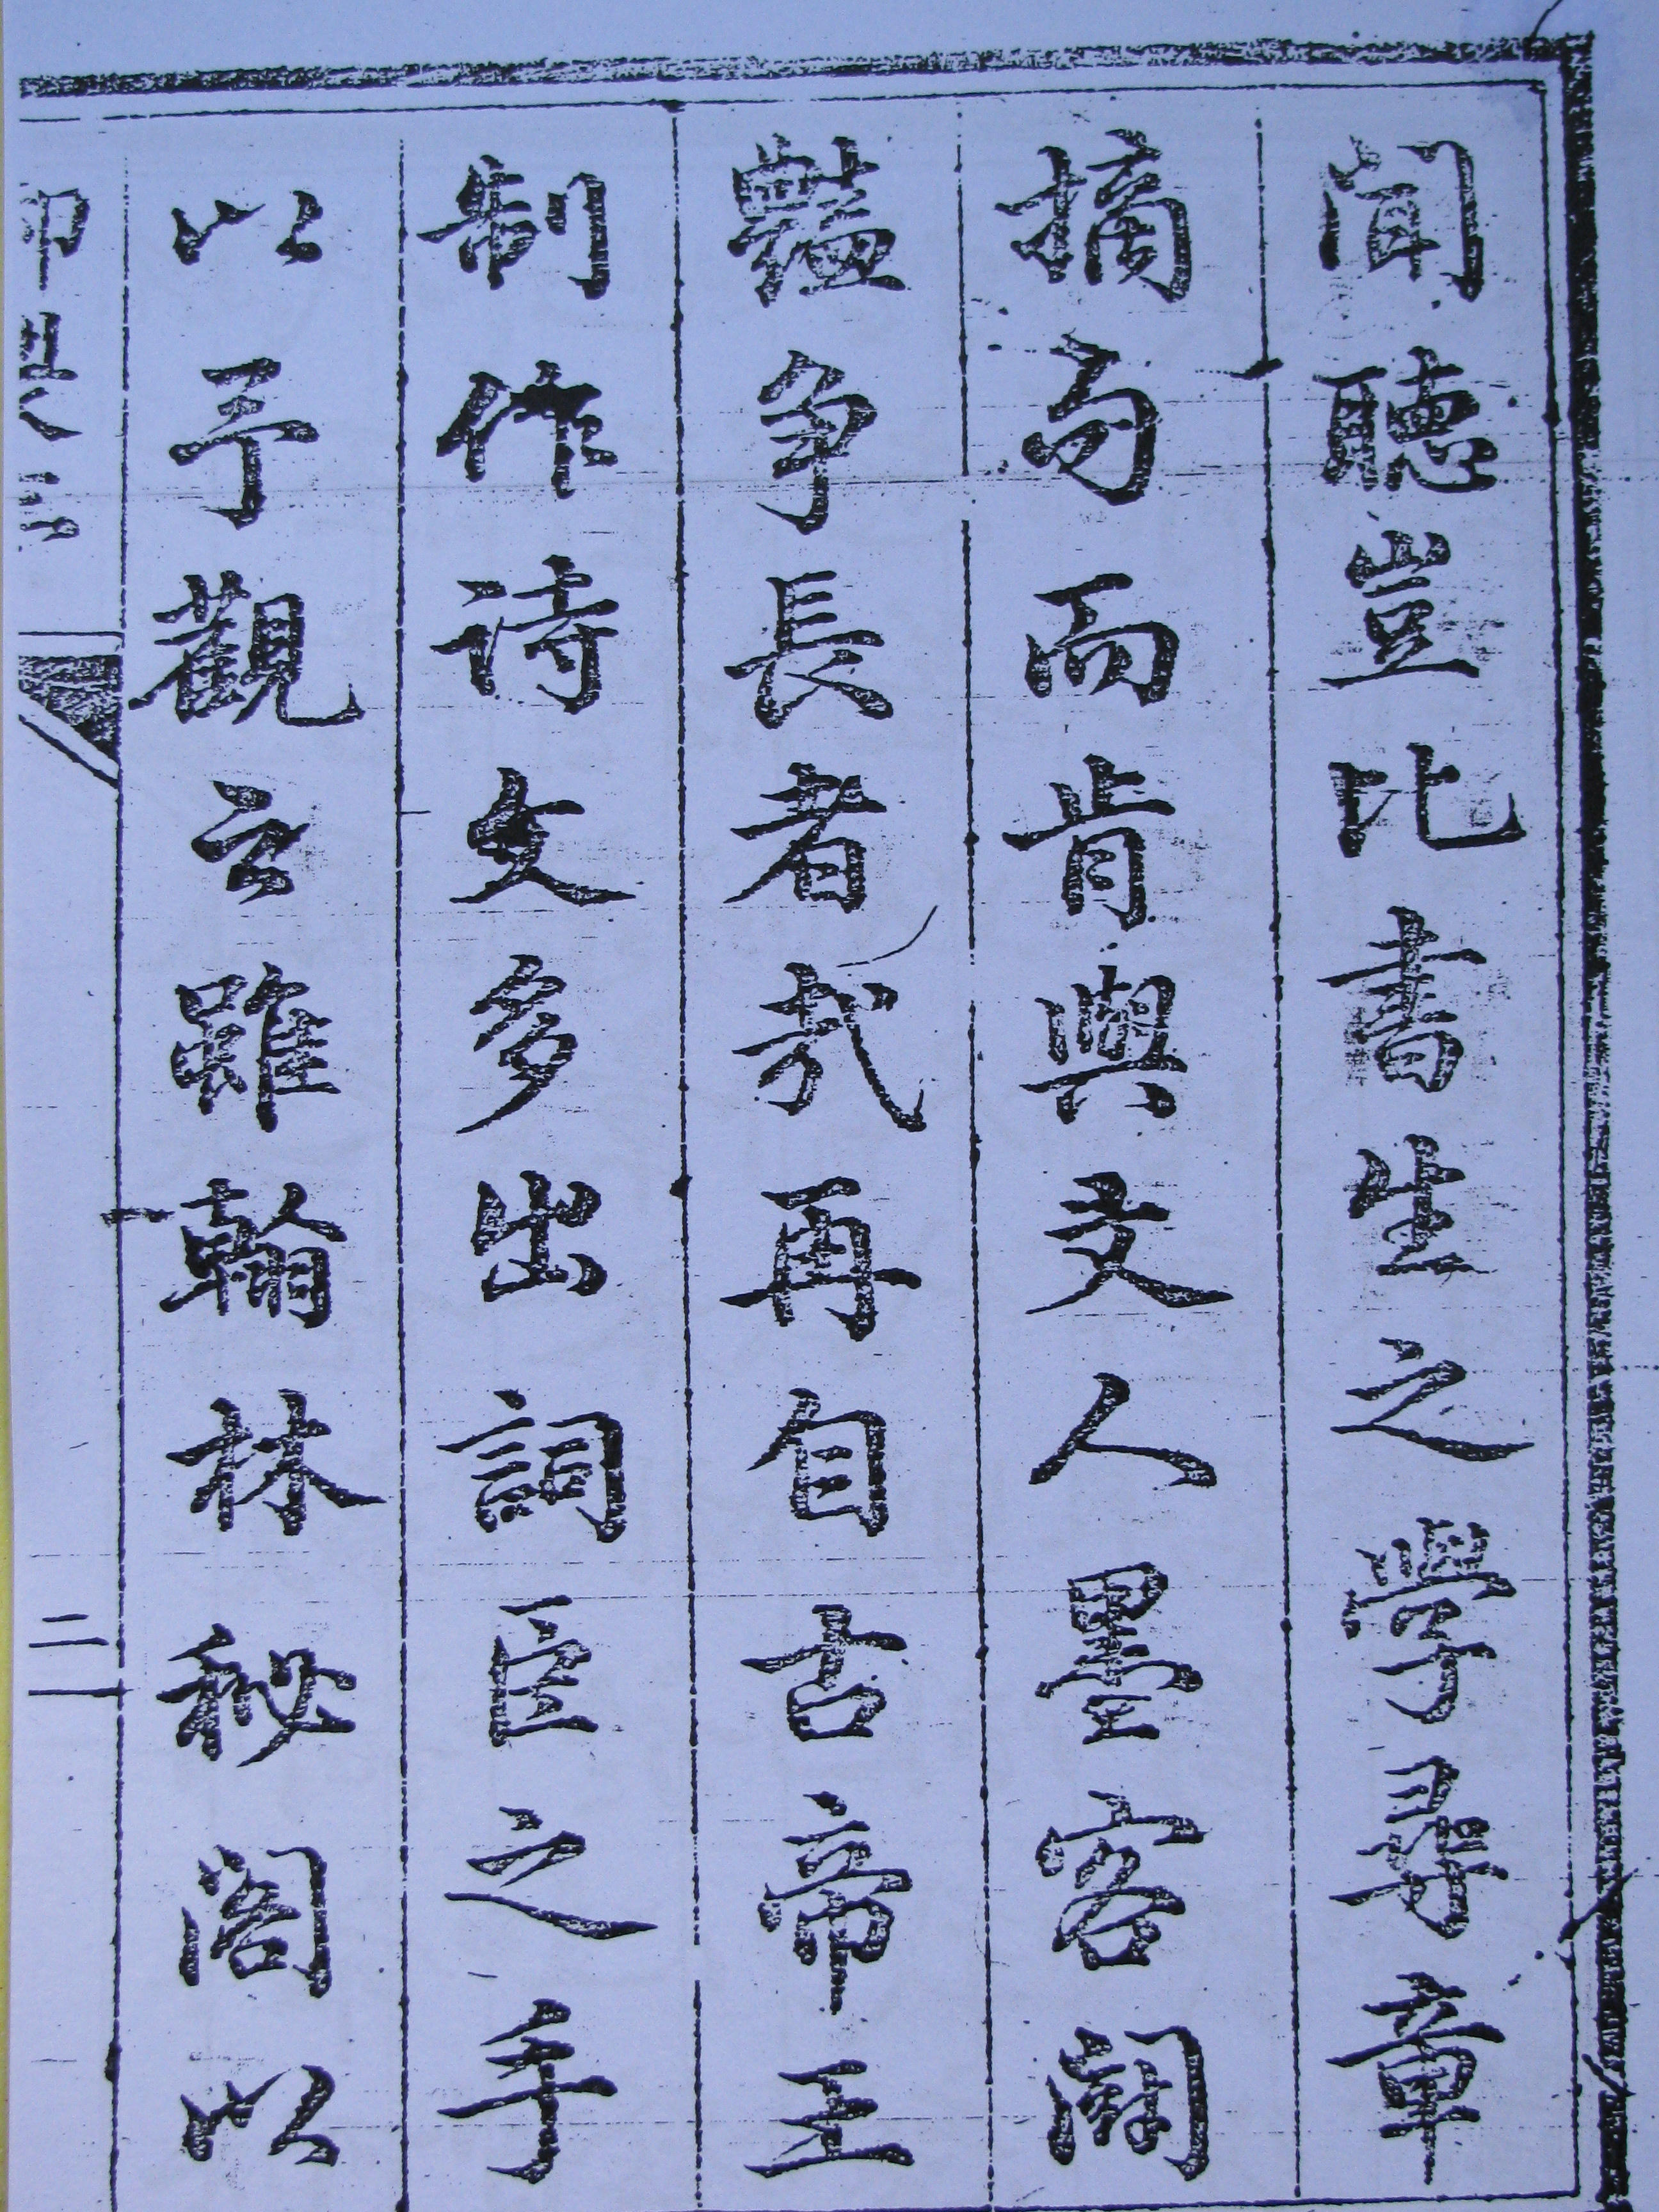 聞聽豈比書生之學尋章
摘句而肯與文人墨客鬪
豔爭長者哉再自古帝王
制作詩文多出詞臣之手
以予觀雖翰林秘閣以
二